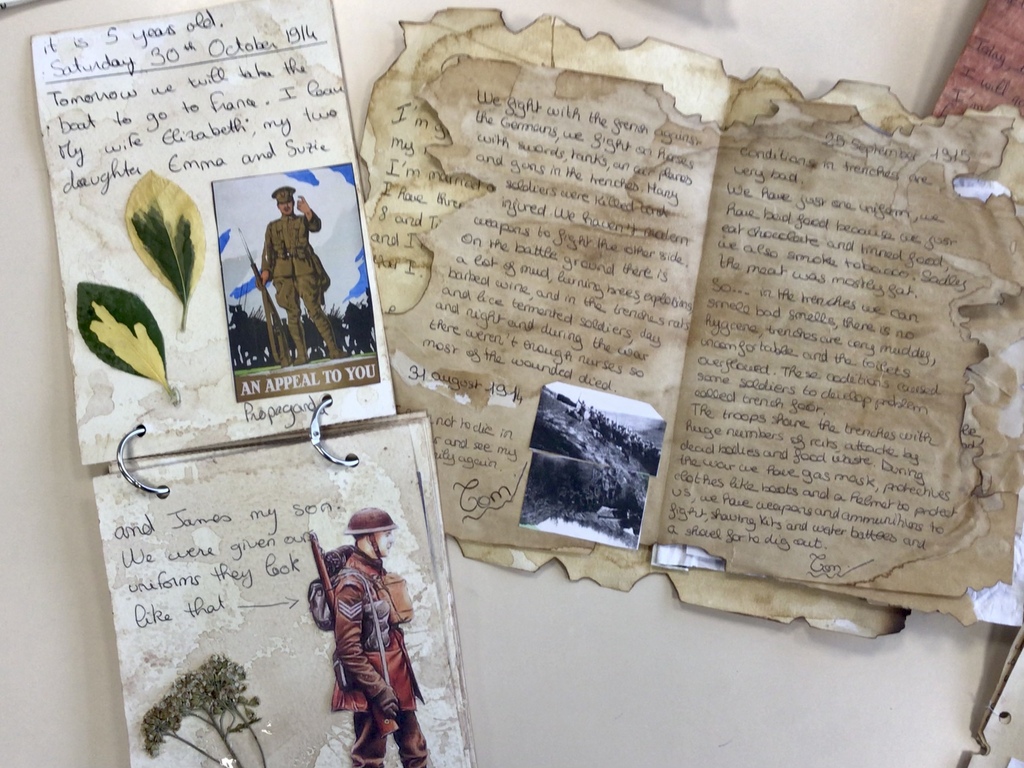 it is 5 years old.
Saturday 30th October 1914
Tomorrow we will take the
boat to go to France. I leave
My wife Elizabeth, my two
daughter Emma and Suzie
AN APPEAL TO YOU
Propagand
and James my son.
We were given our
uniforms they look
like that →
I'm
my
I'm married
I have three
8 and
and I
We fight with the french against
the Germans, we fight on horses
with swords, tanks, an air planes
and guns in the trenches. Many
soldiers were killed and
injured. We haven't modern
weapons to fight the other side,
On the battle ground there is
a lot of mud, burning trees,
barbed wire, and in the trenches rats
and lice tormented soldiers day
and night and during the war
there weren't trough nurses so
most of the wounded died.
31 august 1914
not to die in
and see my
again.
Tom
29 September 1915
conditions in trenches are
very bad.
We have just one uniform, we
have bad food because we just
eat chocolate and tinned food,
we also smoke tobacco. Sadley
the meat was mostly fat.
So... in the trenches we can
smell bad smells, there is no
hygiene, trenches are very muddy,
uncomfortable and the toilets
overflowed. These conditions caused
some soldiers to develop problem
called trench foot.
The troops share the trenches with
huge numbers of rats attracte by
dead bodies and food waste. During
the war we have gas mask, protectives
clothes like boots and a helmet to protect
us, we have weapons and ammunitions to
fight, shaving kits and water bottees and
a shovel for to dig out.
Tom
Today
I will